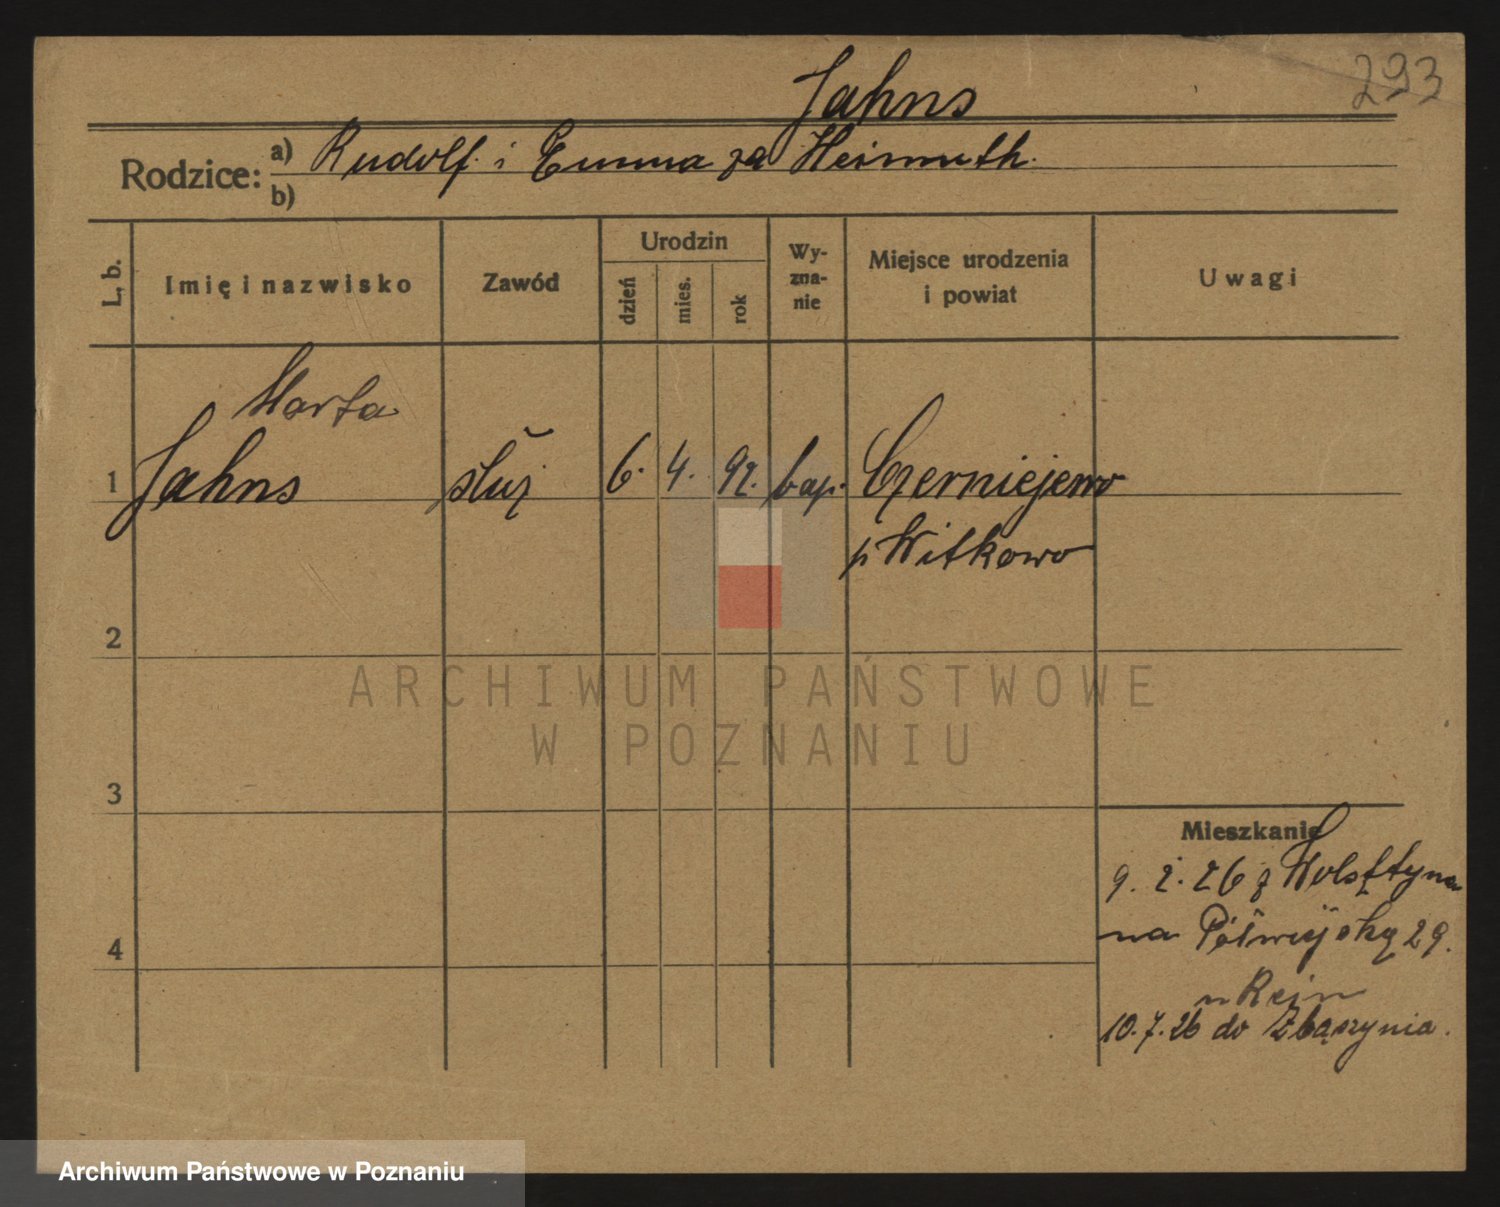 293
Jahns
Rodzice: a) Rudolf. i Emma za Heimuth.
b)
L. b.
Imię i nazwisko
Zawód
Urodzin
dzień
mies.
rok
Wy-
zna-
nie
Miejsce urodzenia
i powiat
Uwagi
Marta
1 Jahns służ 6. 4. 92. bap. Czerniejewo
p Witkowo
2
3
4
Mieszkanie
9. 2. 26 z Wolsztyna
na 29.
u Rein
10.7.26 do Zbąszynia.
ARCHIWUM PAŃSTWOWE
W POZNANIU
Archiwum Państwowe w Poznaniu